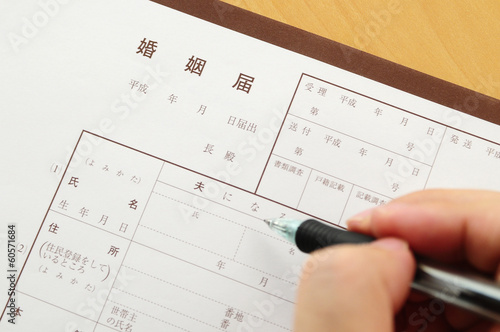 婚姻届
平成　年　月　日届出
長 殿
受理　平成　年　月　日
第　号
発送
送付　平成　年　月　日
第　号
書類調査　戸籍記載　記載調査
(1)
(よみかた)
氏名
生年月日
夫になる
氏
年　月
(2)
住所
(住民登録をして
いるところ)
(よみかた)
番地
番
世帯主
の氏名
本
60571684